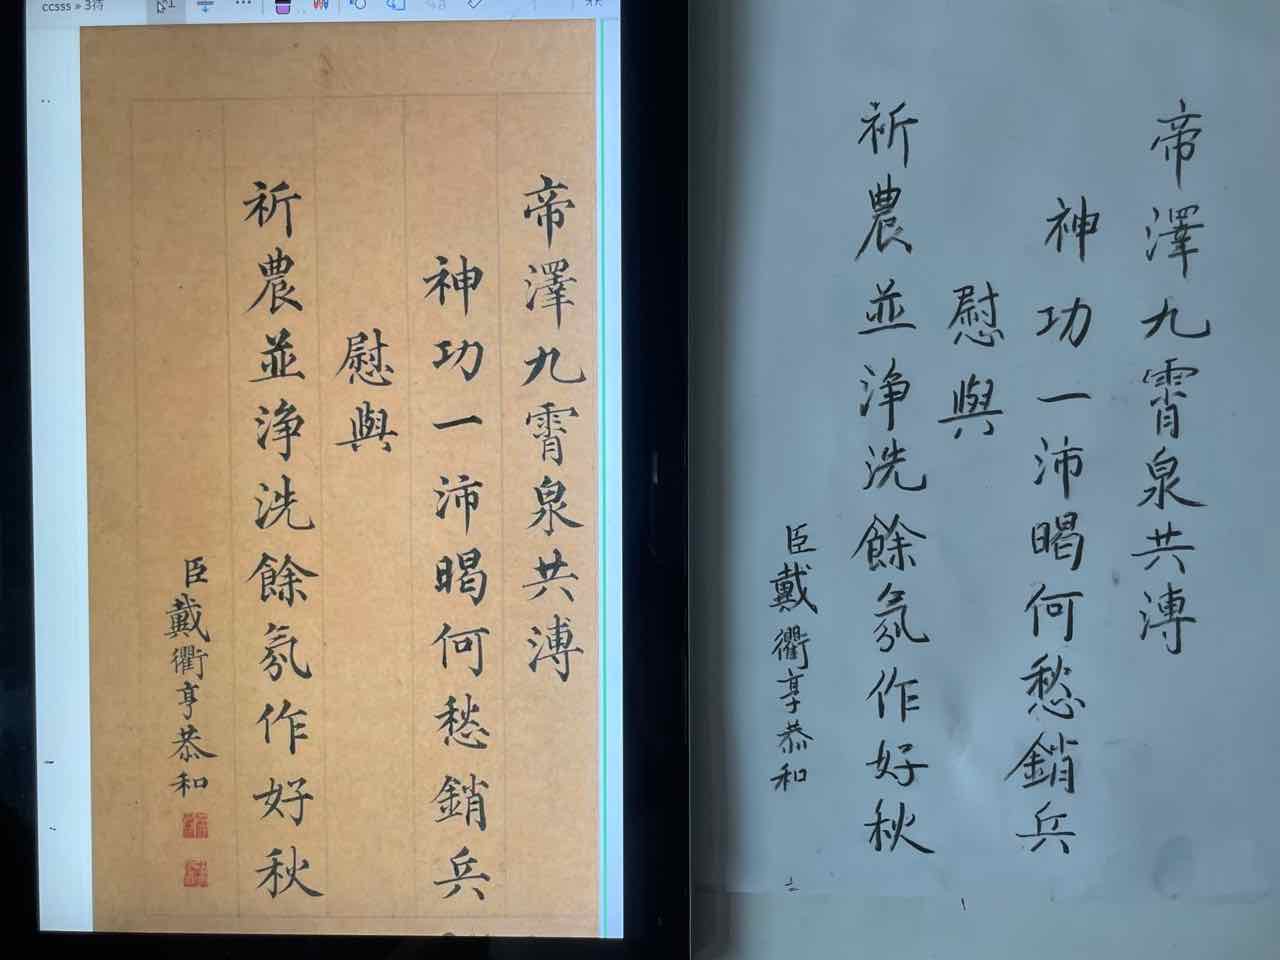 ccsss » 3待
帝澤九霄泉共溥
神功一沛暍何愁銷兵
慰與
祈農並浄洗餘氛作好秋
臣戴衢亨恭和
帝澤九霄泉共溥
神功一沛暍何愁銷兵
慰與
祈農並浄洗餘氛作好秋
臣戴衢亨恭和